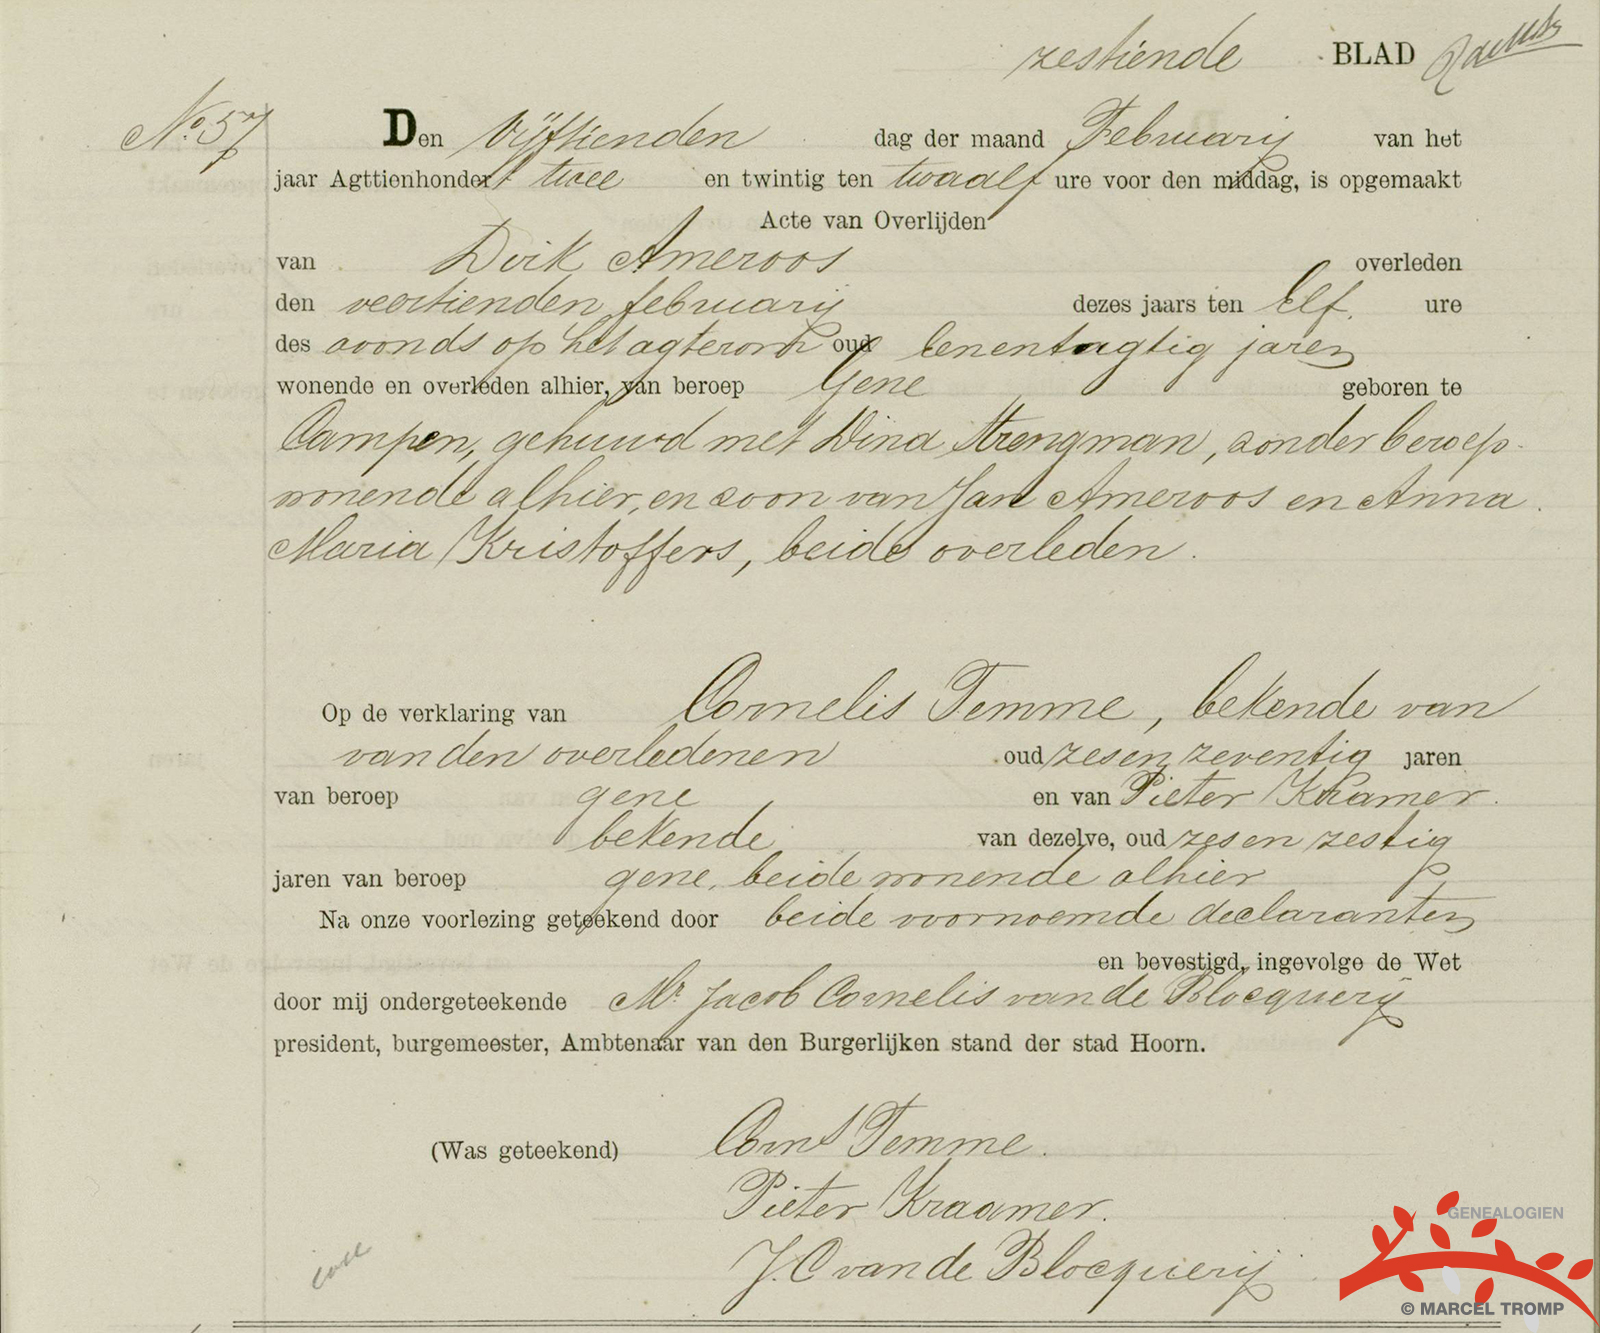 zestiende BLAD
No. 57
Den Vijftienden dag der maand Februarij van het
jaar Agttienhondert twee en twintig ten twaalf ure voor den middag, is opgemaakt
Acte van Overlijden
van Dirk Ameroos overleden
den veertienden februarij dezes jaars ten Elf ure
des avonds op het agterom oud eenentagtig jaren
wonende en overleden alhier, van beroep gene geboren te
Campen, gehuuwd met Dina Strengman, zonder beroep
wonende alhier, en zoon van Jan Ameroos en Anna
Maria Kristoffers, beide overleden.
Op de verklaring van Cornelis Temme, bekende van
van den overledenen oud zes en zeventig jaren
van beroep gene, en van Pieter Kramer
bekende van dezelve, oud zes en zestig
jaren van beroep gene, beide wonende alhier
Na onze voorlezing geteekend door beide voornoemde declaranten
en bevestigd, ingevolge de Wet
door mij ondergeteekende Mr. Jacob Cornelis van de Blocquerij
president, burgemeester, Ambtenaar van den Burgerlijken stand der stad Hoorn.
(Was geteekend) Corns Temme.
Pieter Kraamer.
J. C van de Blocquerij
GENEALOGIEN
© MARCEL TROMP